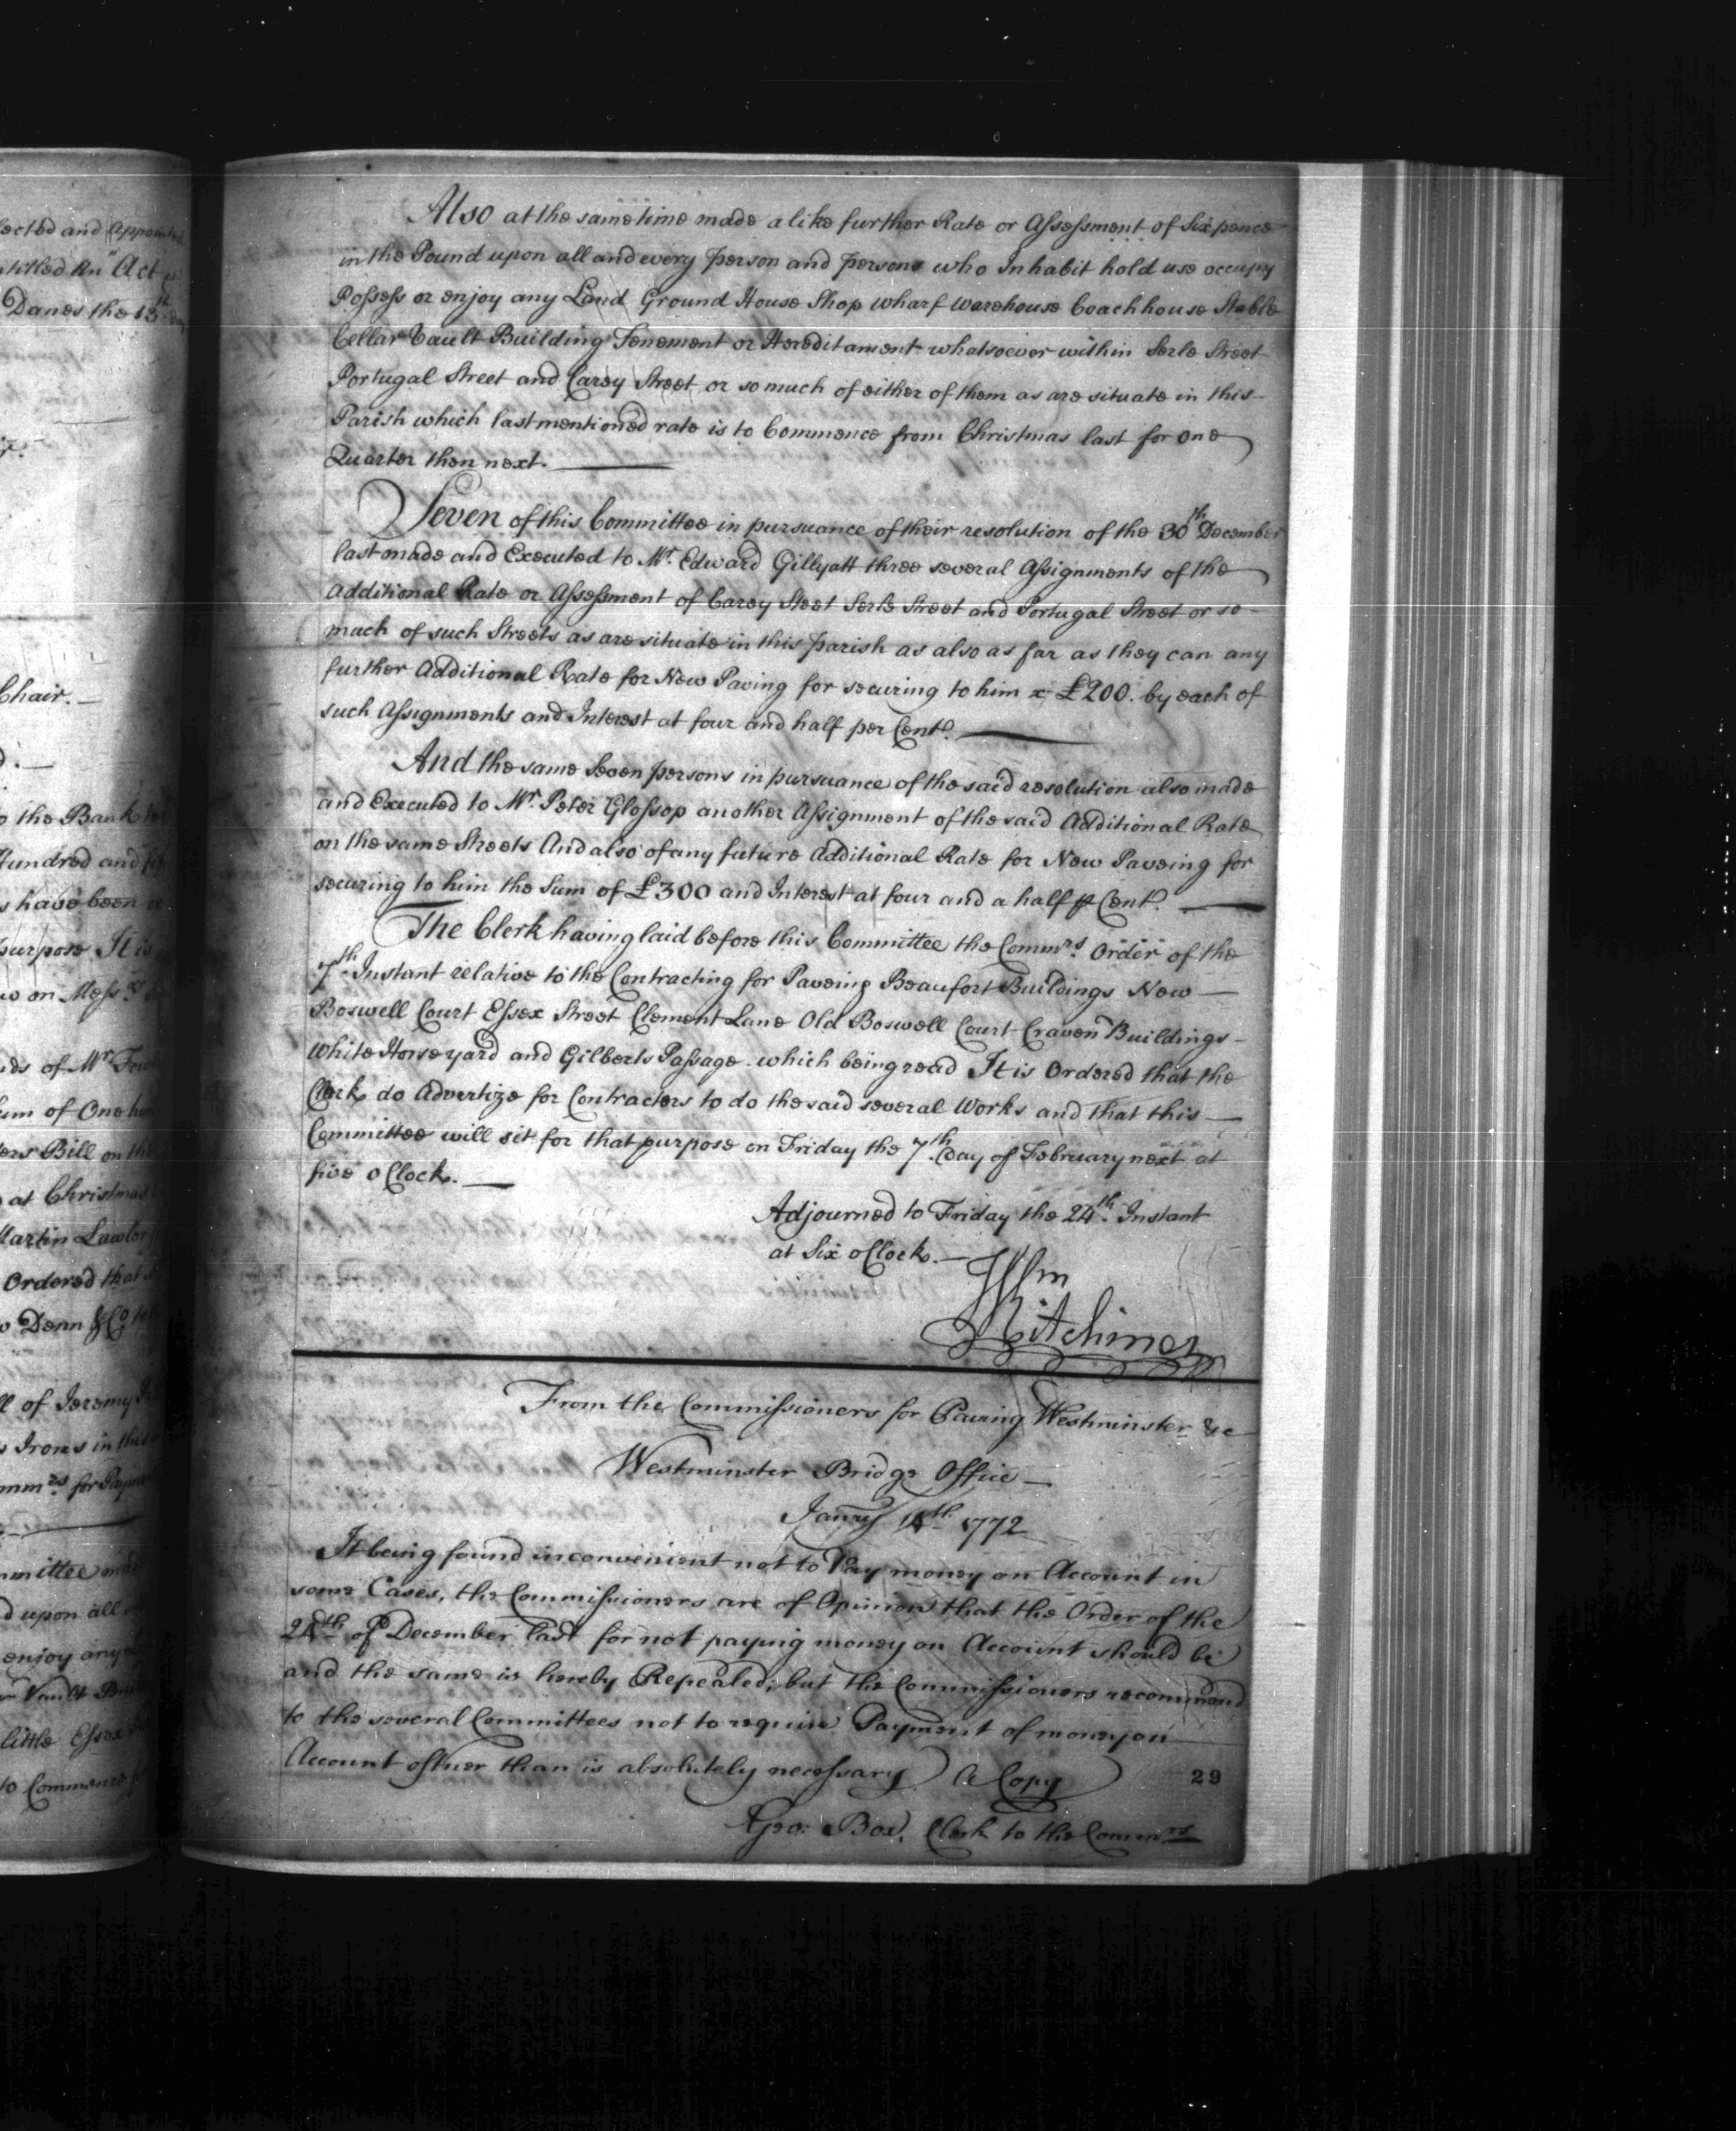 ected and Appointed
ntitled An Act
Danes the 13th
Chair.
to the Bank
Hundred and
s have been
purpose It is
on Mess.rs
ds of Mr.
um of One
ers Bill on the
at Christmas
Martin Lawler
Ordered that
Denn & Co.
of Jeremy
Irons in this
mm.rs for
mmittee
d upon all
enjoy any
Vault
little Essex
to Commence
Also at the same time made a like further Rate or Assessment of Sixpence
in the Pound upon all and every person and persons who Inhabit hold use occupy
Possess or enjoy any Land Ground House Shop Wharf Warehouse Coachhouse Stable
Cellar Vault Building Tenement or Hereditament whatsoever within Serle Street
Portugal Street and Carey Street or so much of either of them as are situate in this
Parish which last mentioned rate is to Commence from Christmas last for one
Quarter then next.
Seven of this Committee in pursuance of their resolution of the 30th December
last made and Executed to Mr. Edward Gillyatt three several Assignments of the
Additional Rate or Assessment of Carey Steet Serle Street and Portugal Street or so
much of such Streets as are situate in this parish as also as far as they can any
further Additional Rate for New Paving for securing to him £200. by each of
such Assignments and Interest at four and half per Cent.
And the same Seven persons in pursuance of the said resolution also made
and Executed to Mr. Peter Glossop another Assignment of the said Additional Rate
on the same Streets And also of any future Additional Rate for New Paveing for
securing to him the Sum of £300 and Interest at four and a half ⅌ Cent.
The Clerk having laid before this Committee the Comm.rs Order of the
7th Instant relative to the Contracting for Paveing Beaufort Buildings New
Boswell Court Essex Street Clement Lane Old Boswell Court Craven Buildings
White Horse yard and Gilberts Passage which being read It is Ordered that the
Clerk do Advertize for Contractors to do the said several Works and that this
Committee will sit for that purpose on Friday the 7th day of February next at
five o Clock.
Adjourned to Friday the 24th Instant
at Six o Clock.
Wm
Kitchiner
From the Commissioners for Paving Westminster &c
Westminster Bridge Office
Janry 14th 1772
It being found inconvenient not to Pay money on Account in
some Cases, the Commissioners are of Opinion that the Order of the
24th of December last for not paying money on Account should be
and the same is hereby Repealed; but the Commissioners recommend
to the several Committees not to require Payment of money on
Account oftner than is absolutely necessary A Copy
29
Geo: Box, Clerk to the Commrs